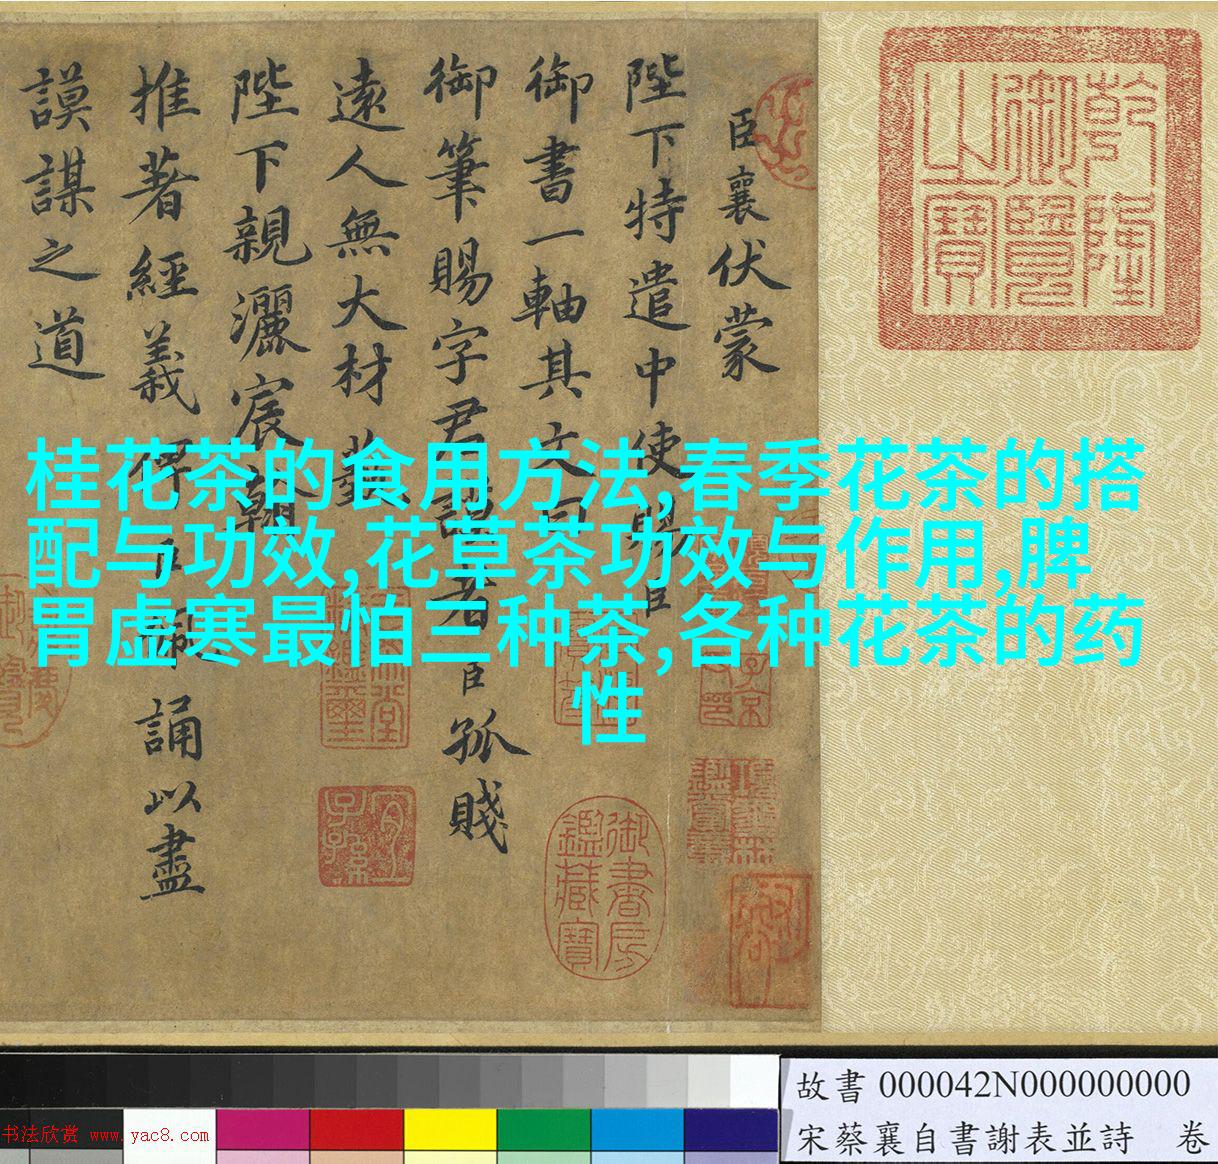 臣襄伏蒙
陛下特遣中使賜臣
御書一軸其文曰
御筆賜字君謨者臣孤賤
遠人無大材藝
陛下親灑宸翰
推著經義俾臣佩誦以盡
謨謀之道
乾隆
御覽
之寶
御書房
鑑藏寶
宜
子孫
桂花茶的食用方法,春季花茶的搭
配与功效,花草茶功效与作用,脾
胃虚寒最怕三种茶,各种花茶的药
性
故書 000042N000000000
宋蔡襄自書謝表並詩 卷
书法欣赏 www.yac8.com